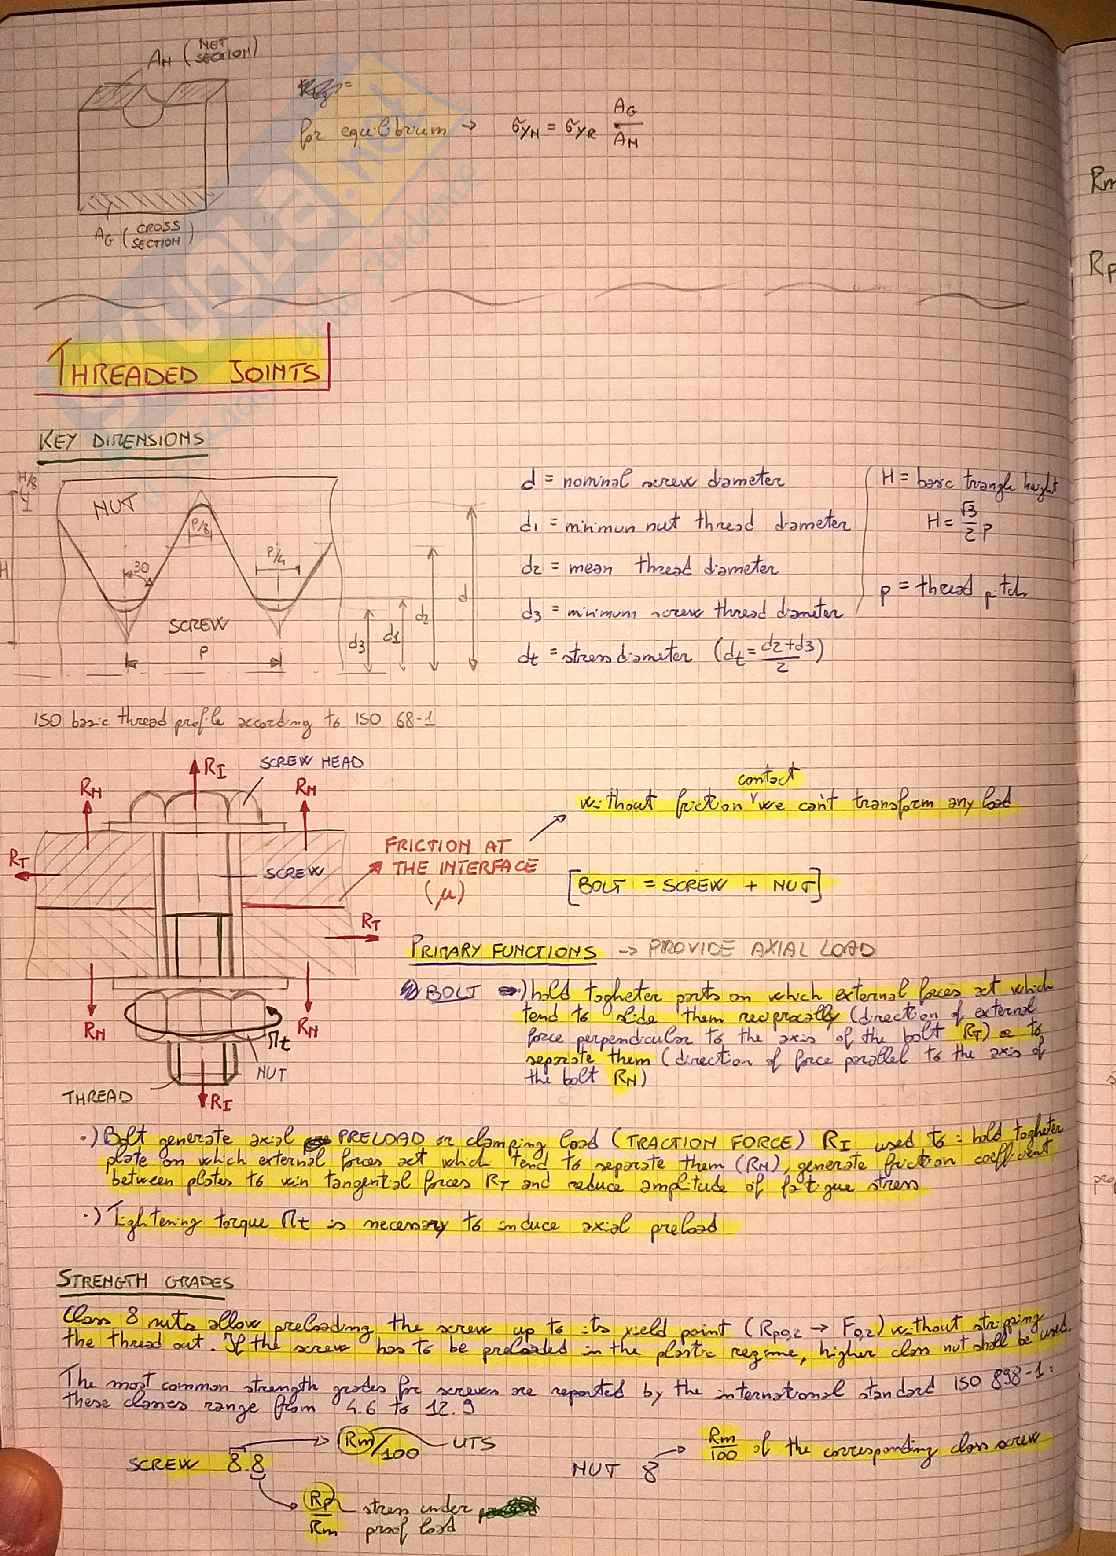 AN (NET SECTION)
for equilibrium → σyN = σyR AG/AN
AG (CROSS SECTION)
THREADED JOINTS
KEY DIMENSIONS
H/8
H/4
NUT
P/8
30
P/4
H
SCREW
P
d3
d1
d2
d
d = nominal screw diameter
d1 = minimun nut thread diameter
d2 = mean thread diameter
d3 = minimum screw thread diameter
dt = stress diameter (dt = d2+d3/2)
H = basic triangle height
H = √3/2 p
p = thread pitch
ISO basic thread profile according to ISO 68-1
RN
RI
SCREW HEAD
RN
RT
SCREW
FRICTION AT
THE INTERFACE
(μ)
RT
RN
RN
Mt
NUT
THREAD
RI
contact
without friction we can't transform any load
[BOLT = SCREW + NUT]
PRIMARY FUNCTIONS → PROVIDE AXIAL LOAD
BOLT •) hold togheter parts on which external forces act which
tend to slide them reciprocally (direction of external
force perpendicular to the axis of the bolt RT) or to
separate them (direction of force parallel to the axis of
the bolt RN)
•) Bolt generate axial PRELOAD or clamping load (TRACTION FORCE) RI used to: hold togheter
plate on which external forces act which tend to separate them (RN), generate friction coefficient
between plates to win tangential forces RT and reduce amplitude of fatigue stress
•) Tightening torque Mt is necessary to induce axial preload
STRENGTH GRADES
Class 8 nuts allow preloading the screw up to its yield point (Rp0,2 → F0,2) without stripping
the thread out. If the screw has to be preloaded in the plastic regime, higher class nut shall be used.
The most common strength grades for screws are reported by the international standard ISO 898-1:
these classes range from 4.6 to 12.9
SCREW 8.8
Rm/100 UTS
Rp/Rm stress under proof load
NUT 8
Rm/100 of the corresponding class screw
Rm
Rp